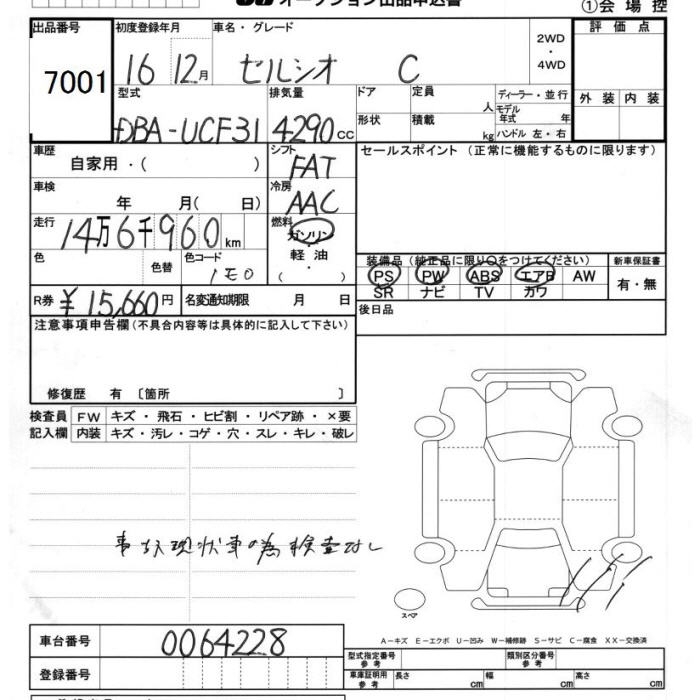 オークション出品申込書
①会場控
出品番号 初度登録年月 車名・グレード 2WD・4WD 評価点
7001 16 12月 セルシオ C
型式 排気量 ドア 定員 人 ディーラー・並行 外装 内装
DBA-UCF31 4290cc 形状 積載 kg モデル年式 年 ハンドル 左・右
車歴 シフト セールスポイント (正常に機能するものに限ります)
自家用・( ) FAT
車検 冷房
年 月( 日) AAC
走行 燃料
14万6千960km ガソリン
色 色替 色コード 軽油
1E0 ・( )
装備品 (純正品に限り○をつけてください) 新車保証書
PS PW ABS エアB AW 有・無
SR ナビ TV カワ
R券 ¥15,660円 名変通知期限 月 日
後日品
注意事項申告欄(不具合内容等は具体的に記入して下さい)
修復歴 有 〔箇所 〕
検査員 FW キズ・飛石・ヒビ割・リペア跡・×要
記入欄 内装 キズ・汚レ・コゲ・穴・スレ・キレ・破レ
事故現状車の為検査なし
スペア
A-キズ E-エクボ U-凹み W-補修跡 S-サビ C-腐食 XX-交換済
車台番号 0064228
型式指定番号 参考 類別区分番号 参考
登録番号
車庫証明用 参考 長さ cm 幅 cm 高さ cm